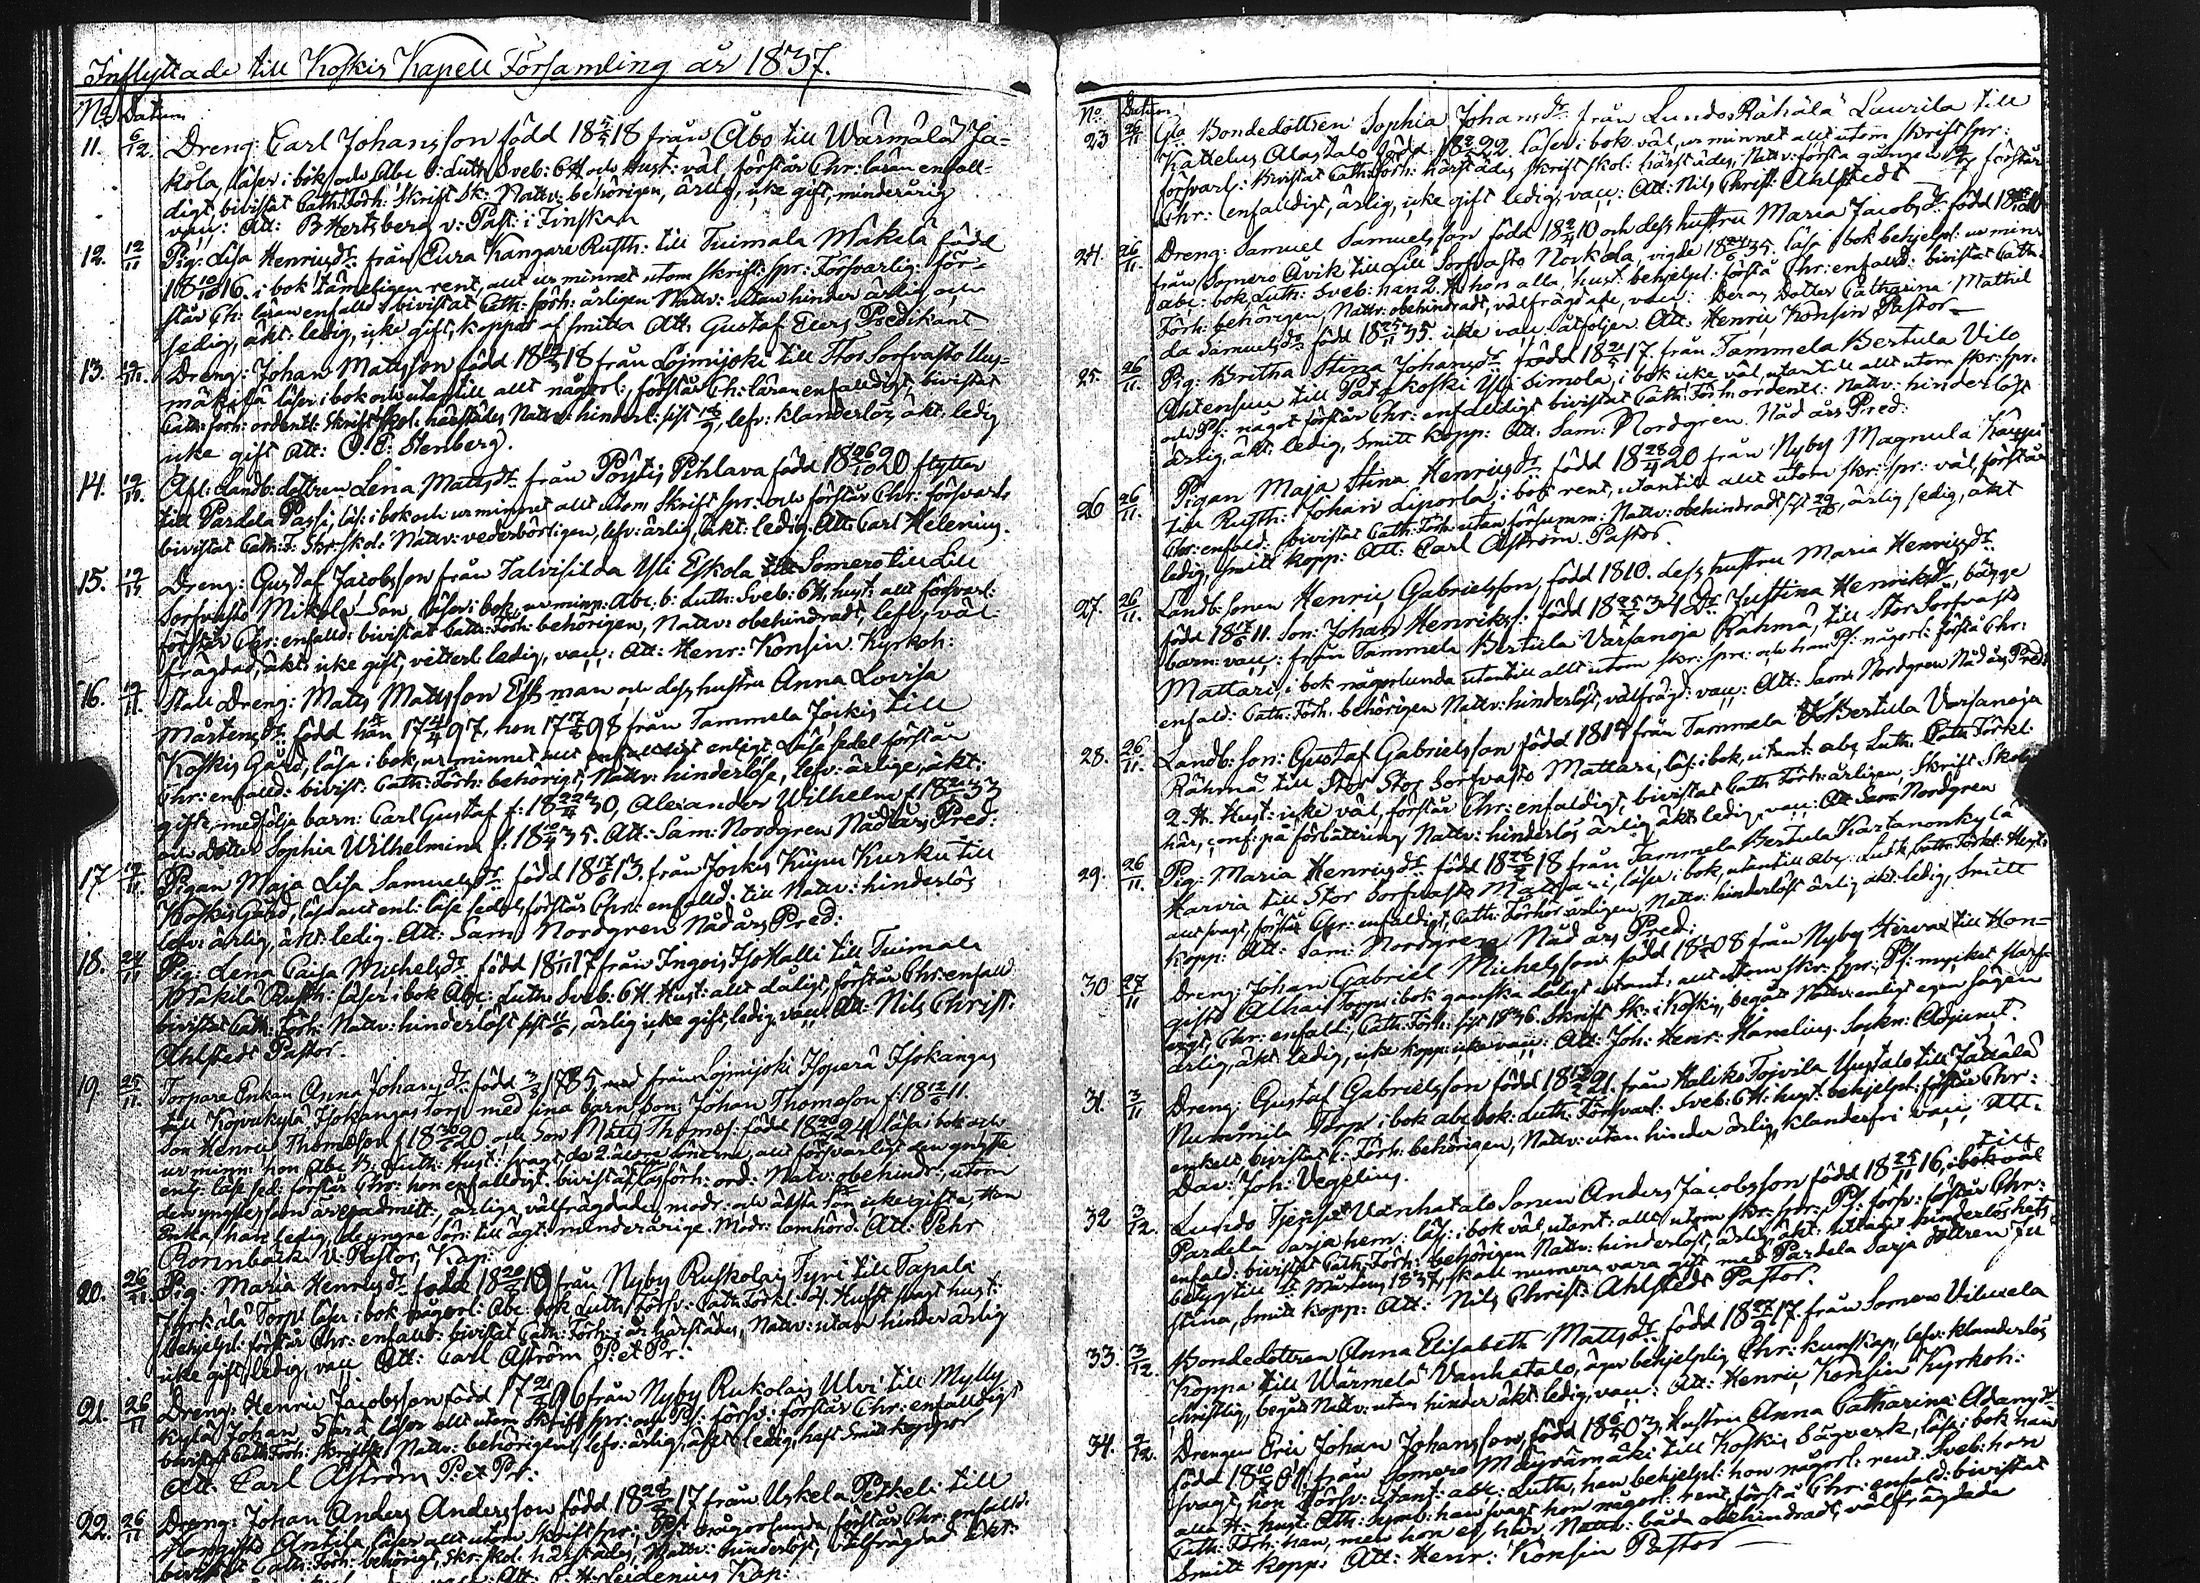 Inflyttade till Koskis Kapell Församling år 1837.
No Datum
11. 6/12. Dreng: Carl Johansson född 18 18 från Åbo till Wärmälä Ja=
kola, läser i bok och Abc b: Luth: Sveb: och Hust: väl, förstår Chr: läran enfall=
digt, bivistat Cath: Förh: Skrift Sk: Nattv: behörigen, ärlig, icke gift, minderårig
vacc: Att: B Hertzberg v: Past: i Finskan
12. 12/11 Pig: Lisa Henricsdr. från Eura Kangare Rusth: till Tuimala Mäkelä född
18 16. i bok tämeligen rent, allt ur minnet utom skrift: spr: Försvarlig: för=
står Ch: läran enfalld: bivistat Cath: förh: årligen Nattv: utan hinder ärlig och
sedig, äkt: ledig, icke gift, koppor af smitta Att: Gustaf Predikant
13. Dreng: Johan Mattsson född 18 18 från Lojmijoki till Stor Sorfvasto Uus=
mäkilä läser i bok och utantill allt någorl:, förstår Ch: läran enfalldigt, bivistat
Cath: förh: ordentl: Skrift Skol: härstädes, Nattv: hinderl: sist, lefv: klanderlöst, äkt: ledig
icke gift Att: Stenberg.
14. Afl: Landb: dottren Lena Mattsdr. från Pöytis Pihlava född 18 20 flyttar
till Pardela Passi, läs: i bok och ur minnet allt utom Skrift spr: och förstår Chr: försvarl:
bivistat Cath: F: Skr: skol: Nattv: vederbörligen, lefv: ärlig, äkt: ledig. Att: Carl Helenius.
15. Dreng: Gustaf Jacobsson från Talvisilda Yli Eskola Somero till Lill
Sorfvasto Mikola Son, läser i bok, ur minn: Abc: b: Luth: Sveb: 6 H, hust: allt försvarl:
förstår Chr: enfalld: bivistat Cath: Förh: behörigen, Nattv: obehindradt, lefv: väl=
frägdad, äkt: icke gift, vitterl: ledig, vacc: Att: Henr: Konsin Kyrkoh:
16. Stall Dreng: Matts Mattsson Eftman och dess hustru Anna Lovisa
Mårtensdr. född han 17 97, hon 17 98 från Tammela Jockis till
Koskis Gård, läsa i bok, ur minnet allt enligt Läse sedel förstår
Chr: enfalld: bivist: Cath: Förh: behörigt, Nattv: hinderlöse, lefv: ärlige, äkt:
gifte, medfölja barn: Carl Gustaf f: 18 30, Alexander Wilhelm f. 18 33
och dotter Sophia Wilhelmina f: 18 35. Att: Sam: Nordgren Nådårs Pred:
17 Pigan Maja Lisa Samuelsdr. född 18 13. från Jockis Kurku till
Koskis Gård, läs allt enl: läse sedel, förstår Chr: enfalld: till Nattv: hinderlös
lefv: ärlig, äkt: ledig. Att: Sam: Nordgren Nådårs Pred:
18. 24/11 Pig: Lena Caisa Michelsdr. född 18 17 från Ingois Iso Halli till Tuimala
Mäkilä Rusth: läser i bok Abc: Luth: Sveb: 6 H Hust: allt dåligt, förstår Chr: enfald
bivistat Cath: Förh: Nattv: hinderlöst sist, ärlig, icke gift, ledig, vacc. Att: Nils Christ:
Ahlstedt Pastor.
19. 25/11. Torpare Enkan Anna Johansdr. född 1785, från Lojmijoki Isoperä Isokangas
till Kojvukylä, Isokangas Torp med sina barn Son: Johan Thomasson f: 18 11.
Son Henric Thomasson f 18 20 och Son Matts Thomæs: född 18 24 läsa i bok och
ur minn: hon Abc b. Luth: Hust: svagt, de 2: äldre sönerna, allt försvarligt den yngste
enl: läse sed: förstår Chr: hon enfalldigt bivistat Cath: förh: ord: Nattv: obehindr:, utom
den yngste, som är oadmitt:, ärliga, välfrägdade, modr: och äldste Son icke gifte, Hon
Enka han ledig, de yngre Sön: till ägt: minderårige. Modr: lomhörd. Att: Pehr
Bonnback V. Pastor, Kap:
20. 26/11. Pig: Maria Henricsdr. född 18 18 från Nyby Ruskolais Tyri till Tapala
Torp: läser i bok någorl: Abc bok Luth: Försv: Cath: Förkl: svagt hust:
behjelpl: förstår Chr: enfalld: bivistat Cath: Förh: i år härstädes, Nattv: utan hinder ärlig
icke gift, ledig, vacc. Att: Carl Åström P: et Pr:
21. 26/11 Dreng: Henric Jacobsson född 17 96 från Nyby Rukolais Ulvi till Mylly
kylä Johan Särä läser allt utom Skrift spr: och Ps: försv: förstår Chr: enfalldigt
bivistat Cath: Förh: skriftsk: Nattv: behörigen, lefv: ärlig, äkt: ledig, haft Smittkoppor
Att: Carl Åström P: et Pr:
22. 26/11 Dreng: Johan Anders Andersson född 18 17 från Uskela Pitkeli till
Hongisto Antila, läser allt utom Skrift spr: Ps: någorlunda, förstår Chr: enfalld:
bivistat Cath: Förh: behörigt, Skr: skol: härstädes, Nattv: hinderlöst, välfrägdad äkt:
No. Datum
23 26/11 Bondedottren Sophia Johansdr. från Lundo Rähälä Laurila till
Kättelus Alastalo född 18 22 läser i bok väl, ur minnet allt utom skrift spr:
försvarl: bivistat Cath: Förh: härstädes, skrift skol: härstädes, Nattv: första gången förstår
Chr: enfalldigt, ärlig, icke gift ledig, vacc: Att: Nils Christ: Ahlstedt
24. 26/11. Dreng: Samuel Samuelsson född 18 10 och dess hustru Maria Jacobsdr. född 18
från Somero Åvik till Lill Sorfvasto Novkola, vigde 18 35, läsa i bok behjelpl: ur minn
abc: bok Luth: Sveb: han 2. H. hon alla, hust: behjelpl: förstå Chr: enfalld: bivistat Cath:
Förh: behörigen, Nattv: obehindradt, välfrägdade, vacc: Deras Dotter Catharina Mathil
da Samuelsdr. född 18 35. icke vacc: åtföljer Att: Henric Konsin Pastor
25. 26/11. Pig: Britha Stina Johansdr. född 18 17. från Tammela Bertula Vilo
Ahtensuu till Patakoski Yli Simola, i bok icke väl, utantill allt utom skr: spr:
och Ps: något förstår Chr: enfalldigt bivistat Cath: Förh: ordentl: Nattv: hinderlöst
ärlig, äkt: ledig, Smitt kopp: Att: Sam: Nordgren Nådårs Pred:
26 26/11. Pigan Maja Stina Henricsdr. född 18 20 från Nyby Magnula Kauppi
till Rusth: Johan Liporla, i bok rent, utantill allt utom skr: spr: väl, förstår
Chr: enfald: bivistat Cath: Förh: utan försumm: Nattv: obehindradt sist, ärlig, sedig, äkt
ledig, smitt kopp: Att: Carl Åström Pastor.
27. 26/11. Landb: Sonen Henric Gabrielsson, född 1810. dess hustru Maria Henricsdr.
född 18 11. Son: Johan Henrikss: född 18 34 Dr. Justina Henriksdr. bägge
barn: vacc: från Tammela Bertula Varsanoja Rähmä, till Stor Sorfvasto
Mattari, i bok någorlunda utantill allt utom skr: spr: och han Ps: någorl: förstå Chr:
enfald: Cath: Förh: behörigen Nattv: hinderlöst, välfrägd: vacc: Att: Sam: Nordgren Nådårs Pred:
28. 26/11. Landb: Son: Gustaf Gabrielsson född 1814 från Tammela Bertula Varsanoja
Rähmä till Stor Sorfvasto Mattari, läs: i bok, utant: abc, Luth: Cath: Förkl:
2. H. Hust: icke väl, förstår Chr: enfaldigt, bivistat Cath Förh: årligen, Skrift Skol
här, conf: på förbättring Nattv: hinderlös ärlig äkt ledig, vacc: Att Sam: Nordgren
29. 26/11. Pig: Maria Henricsdr. född 18 18 från Tammela Bertula Kartanonkylä
Harvia till Stor Sorfvasto Mattari, läser i bok, utantill Abc: Luth: Cath: Förkl: Hust:
allt svagt, förstår Chr: enfaldigt, Cath: Förhör årligen, Nattv: hinderlöst ärlig äkt: ledig, Smitt
kopp: Att: Sam: Nordgren Nådårs Pred:
30 27/11 Dreng: Johan Gabriel Michelsson född 18 08 från Nyby Hirvas till Hon=
gisto Alhais Torp, i bok ganska dåligt utant: allt utom skr: spr: Ps: mycket
Chr: enfald:, Cath: Förh: sist 1836. Skrift Sk: i Koskis, begår Nattv: enligt egen sägen
ärlig, äkt: ledig, icke kopp: icke vacc: Att: Joh: Henr: Hanelius Sockn: Adjunct.
31. 3/11 Dreng: Gustaf Gabrielsson född 18 21. från Haliko Tojvila Uustalo till Tättälä
Nummila Torp i bok abc bok: Luth: Försvarl: Sveb: 6 H: hust: behjelpl: förstår Chr:
enkelt, bivistat C. Förh: behörigen, Nattv: utan hinder ärlig, klanderfri vacc: Att:
Dav: Joh: Vegelius.
32 3/12. Lundo Vanhatalo Sonen Anders Jacobsson född 18 16, till
Pardela Sarja hem: läs: i bok väl, utant: allt utom skr: spr: Ps: försv: förstår Chr:
enfald: bivistat Cath: Förh: behörigen Nattv: hinderlöst, ärlig, äkt: uttagit hinderlöshets
betyg till St. Mårtens 1837, skall numera vara gift med Pardela Sarja dottren Ju
stina, Smitt kopp: Att: Nils Christ: Ahlstedt Pastor.
33. 3/12. Bondedottren Anna Elisabeth Mattsdr. född 18 17. från Somero Vilwela
Koppa till Wärmelä Vanhatalo, äger behjelplig Chr: kunskap, lefv: klanderlös
christlig, begår Nattv: utan hinder äkt: ledig, vacc: Att: Henric Konsin Kyrkoh:
34. Drengen Eric Johan Johansson, född 18 03, Hustru Anna Catharina Adamsdr
född 18 01 från Somero Mäyrämäki till Koskis Sågverk, läsa i bok han
svagt, hon försv: utant: abc: Luth, han behjelpl: hon någorl: rent Sveb: hon
alla H: hust: Ath: Symb: han svagt hon någorl: rent, förstå Chr: enfald: bivistat
Cath: Förh: han, men hon ej här, Nattv: båda obehindradt, välfrägdade
Smitt kopp: Att: Henr: Konsin Pastor